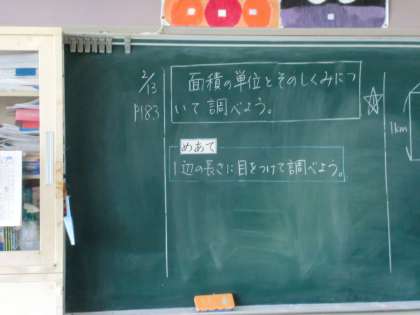 2/13
P183
面積の単位とそのしくみにつ
いて調べよう。
めあて
1辺の長さに目をつけて調べよう。
1km